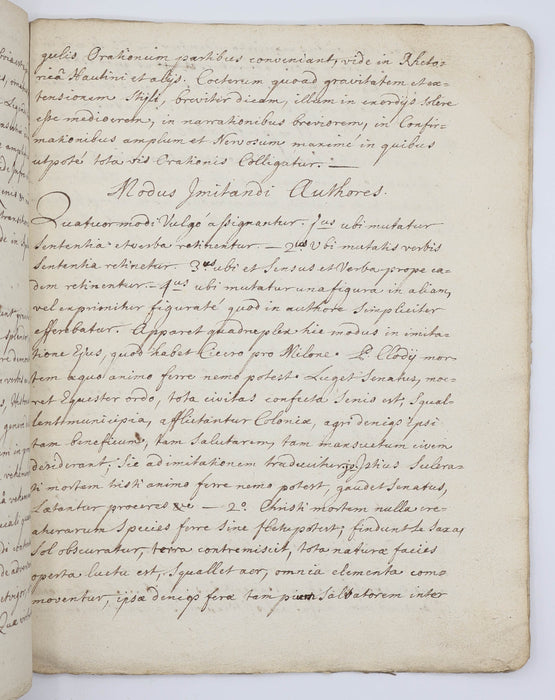 gulis Orationum partibus conveniant, vide in Rheto-
ricâ Hautini et alijs. Cœterum quoad gravitatem et ex-
tensionem Styli, breviter dicam, illum in exordijs solere
esse mediocrem, in narrationibus breviorem, in Confir-
mationibus amplum et Nervosum maximè in quibus
utpotè tota vis Orationis Colligatur. —
Modus Jmitandi Authores.
Quatuor modi Vulgò assignantur. 1us ubi mutatur
Sententia et verba retinentur. — 2us Ubi mutatis verbis
Sententia retinetur. 3us ubi et Sensus et Verba prope ea-
dem retinentur — 4us ubi mutatur una figura in aliam,
vel exprimitur figuratè quod in authore Simpliciter
efferebatur. Apparet quadruplex hic modus in imita-
tione Ejus, quod habet Cicero pro Milone. P. Clodij mor-
tem æquo animo ferre nemo potest. Luget Senatus, mœ-
ret Equester ordo, tota civitas confecta Senio est, Squal-
lent municipia, afflictantur Coloniæ, agri deniqs ipsi
tam beneficum, tam Salutarem, tam mansuetum civem
desiderant, Sic ad imitationem traducitur Jstius Scelera-
ti mortem tristi animo ferre nemo potest, gaudet Senatus,
Lætantur proceres &c — 2o. Christi mortem nulla cre-
aturarum Species ferre Sine fletu potest; findunt Se Saxa,
Sol obscuratur, terra contremiscit, tota naturæ facies
operta luctu est, Squallet aer, omnia elementa com-
moventur, ipsæ deniqs feræ tam pium Salvatorem inter